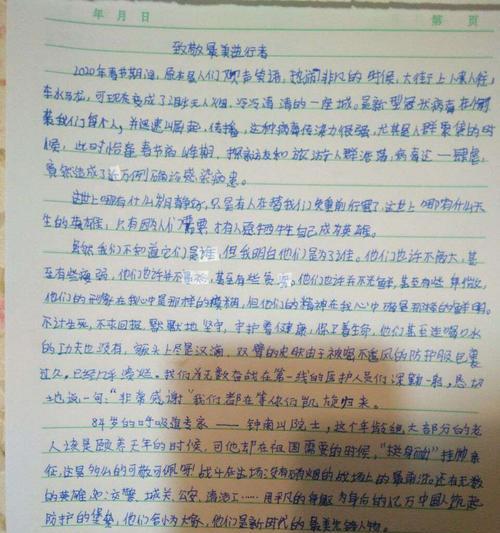 年 月 日 第 页
致敬最美逆行者
2020年春节期间,原本是人们欢声笑语,热闹非凡的时候,大街上人来人往,
车水马龙,可现在变成了空无人烟,冷冷清清的一座城。是新型冠状病毒在
袭我们每个人,并迅速崛起,传播,这种病毒传染力很强,尤其是人群聚集的时
候,此时恰逢春节高峰期,探亲访友和旅游人群混杂,病毒还一肆虐,
竟然造成了近万例确诊感染病患。
这世上哪有什么岁月静好,只是有人在替我们负重前行罢了,这世上哪有什么天
生的英雄,只有因为人们需要才有人愿牺牲自己成为英雄。
虽然我们不知道它们是谁,但我明白他们是为了谁。他们也许不高大,甚
至有些瘦弱,他们也许并不,甚至有些。他们也许并不光鲜,甚至有些,
他们的形象在我心中是那样的模糊,但他们的精神在我心中确是那样的鲜明。
不计生死,不求回报,默默地坚守,守护着健康,保卫着生命,他们甚至连喝口水
的功夫也没有,额头上尽是汗滴,双臂的皮肤由于被密不透风的防护服包裹
过久,已经几乎溃烂。我们为无数奋战在第一线的医护人员们深鞠一躬,恳切
地说一句:“非常感谢”我们都在等你们凯旋归来。
84岁的呼吸道专家——钟南山院士,这个年龄组大部分的老
人该是颐养天年的时候,可他却在祖国需要的时候,“挺身而出”挂帅亲
征,这是多么的可敬可佩啊!战斗在当场没有硝烟的战场上的最前沿。还在无数
的英雄如:交警,城关,公安,清洁工……用平凡的身躯为身后的亿万中国人筑起
防护的堡垒,他们舍小为大家,他们是新时代的最美先锋人物。